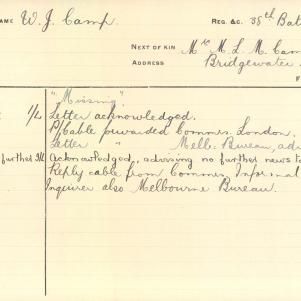 NAME W. J. Camp. REG. &C. 38th Bat
NEXT OF KIN Mrs M. L. M. Cam
ADDRESS Bridgewater
"Missing"
1/2 Letter acknowledged.
P/Cable forwarded Commrs. London.
Letter " Melb: Bureau, adv
further Acknowledged, advising no further news to
Reply cable from Commrs, Informal
Inquirer also Melbourne Bureau.